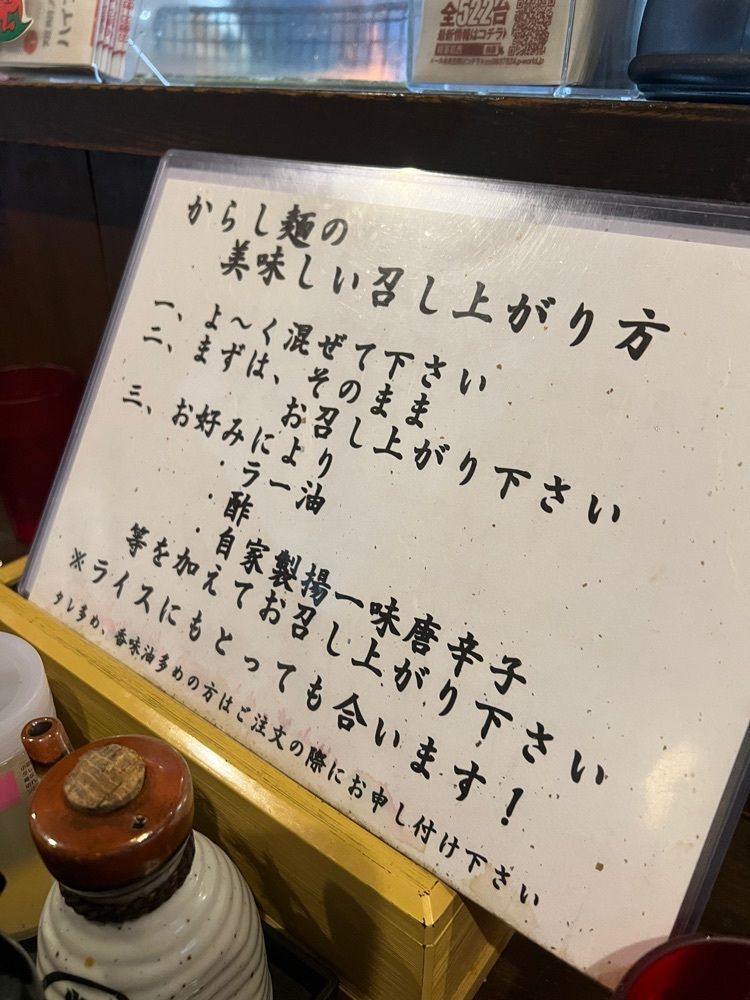 全522台
最新情報はコチラ
からし麺の
美味しい召し上がり方
一、よ～く混ぜて下さい
二、まずは、そのまま
お召し上がり下さい
三、お好みにより
・ラー油
・酢
・自家製揚一味唐辛子
等を加えてお召し上がり下さい
※ライスにもとっても合います！
タレ多め、香味油多めの方はご注文の際にお申し付け下さい